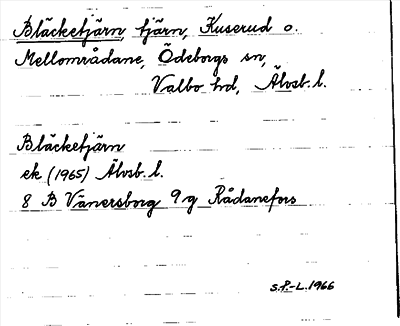 Bläcketjärn, tjärn, Kuserud o.
Mellområdane, Ödeborgs sn,
Valbo hd, Älvsb. l.
Bläcketjärn
ek (1965) Älvsb. l.
8 B Vänersborg 9 g Rådanefors
S.P.-L. 1966